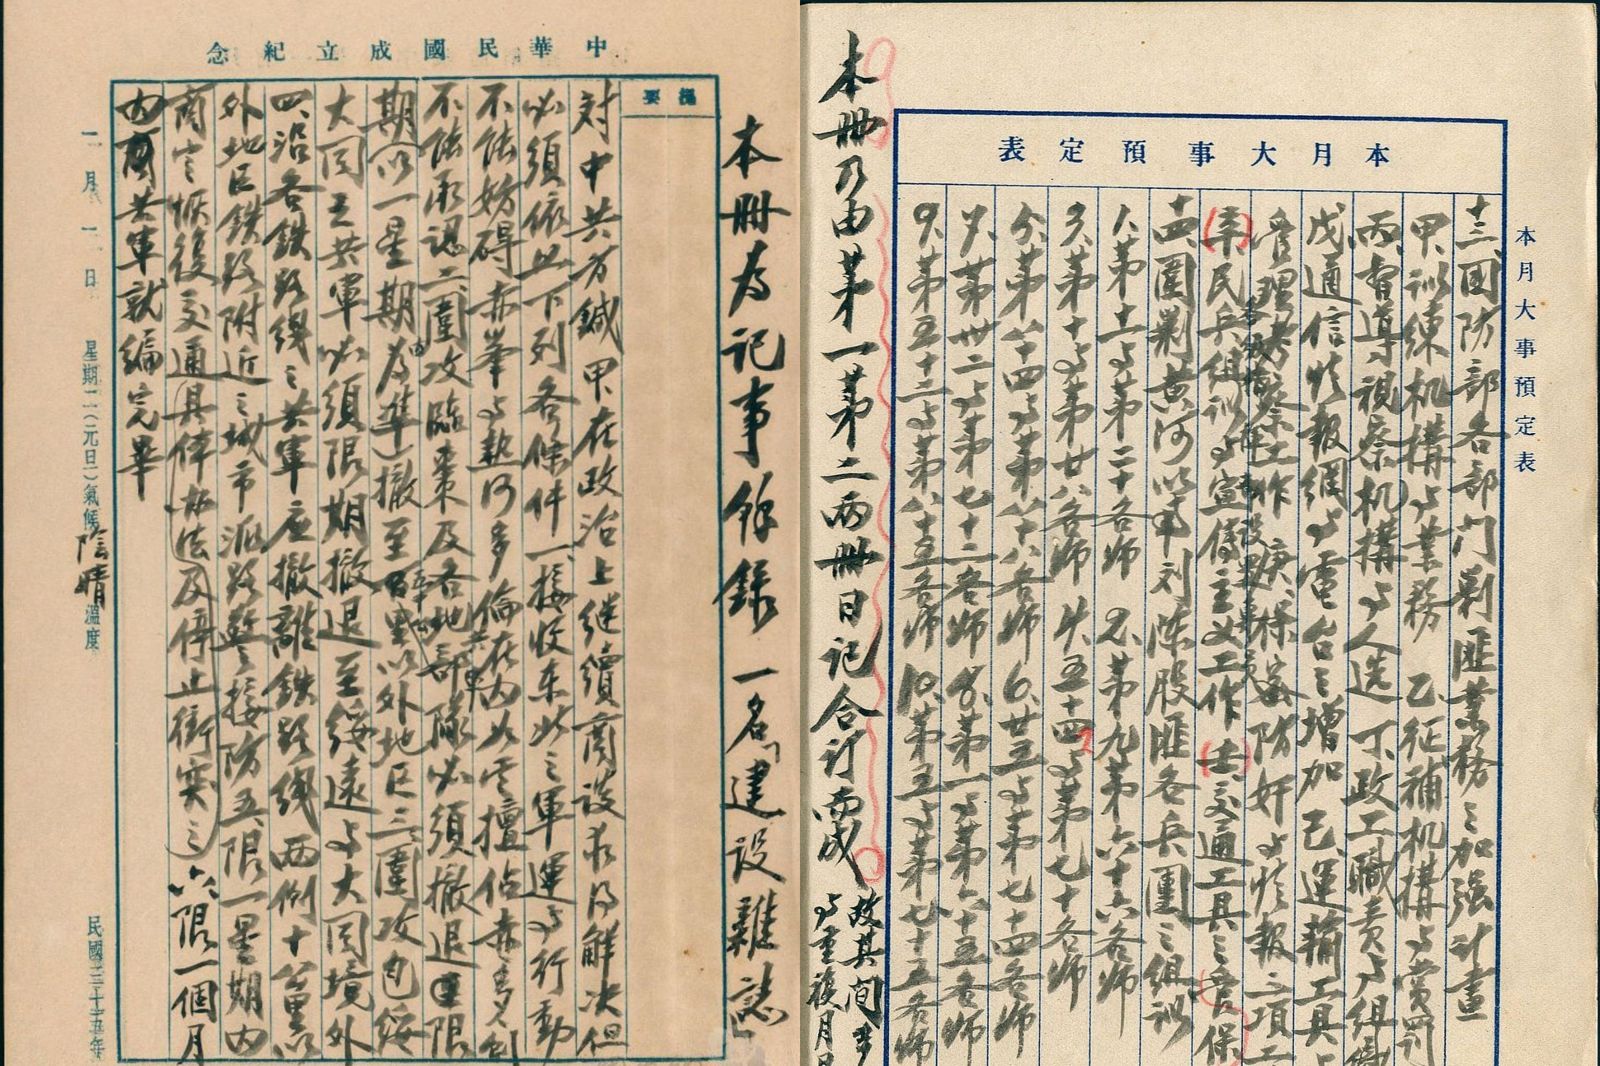 中華民國成立紀念
提要
本冊為記事雜錄 一名「建設雜誌」
對中共方鍼 甲、在政治上繼續商談求得解決但
必須依照下列各條件 一、接收東北之軍運與行動
不能妨礙 赤峯與熱河多倫在內
不能承認 二、圍攻臨棗及各地部隊必須撤退
期以一星期為準 撤至百里以外地區 三、圍攻包綏
大同之共軍必須限期撤退至綏遠與大同境外
四、沿各鐵路線之共軍應撤離鐵路線兩側十公里以
外地區鐵路附近之城市派路警接防 五、限一星期內
商定恢復交通具體辦法及停止衝突 六、限一個月
內商共軍就編完畢
一月一日 星期二(元日) 氣候 陰晴 溫度 民國三十五年
本月大事預定表
本月大事預定表
十三、國防部各部門剿匪業務之加強計畫
甲、訓練机構與業務 乙、征補机構與賞罰
丙、督導視察机構與人選 丁、政工職責與組織
戊、通信情報網與電台之增加 己、運輸工具
管理考察工作 庚、保密防奸與情報之項工
辛、民兵組訓與宣傳主义工作 壬、交通工具之
十四、圍剿黃河以 刘陈股匪各兵團之組訓
1、第十一与第二十各师 2、第九第六十六各师
3、第十与第廿八各师 4、五十四与第七十各师
5、第八十四与第八十八各师 6、廿五与第七十四各师
7、第卅二与第七十二各师 8、第一与第六十五各师
9、第五十二与第八十五各师 10、第五与第七十五各师
本冊乃由第一第二兩冊日記合訂而成 故其間
与重複月